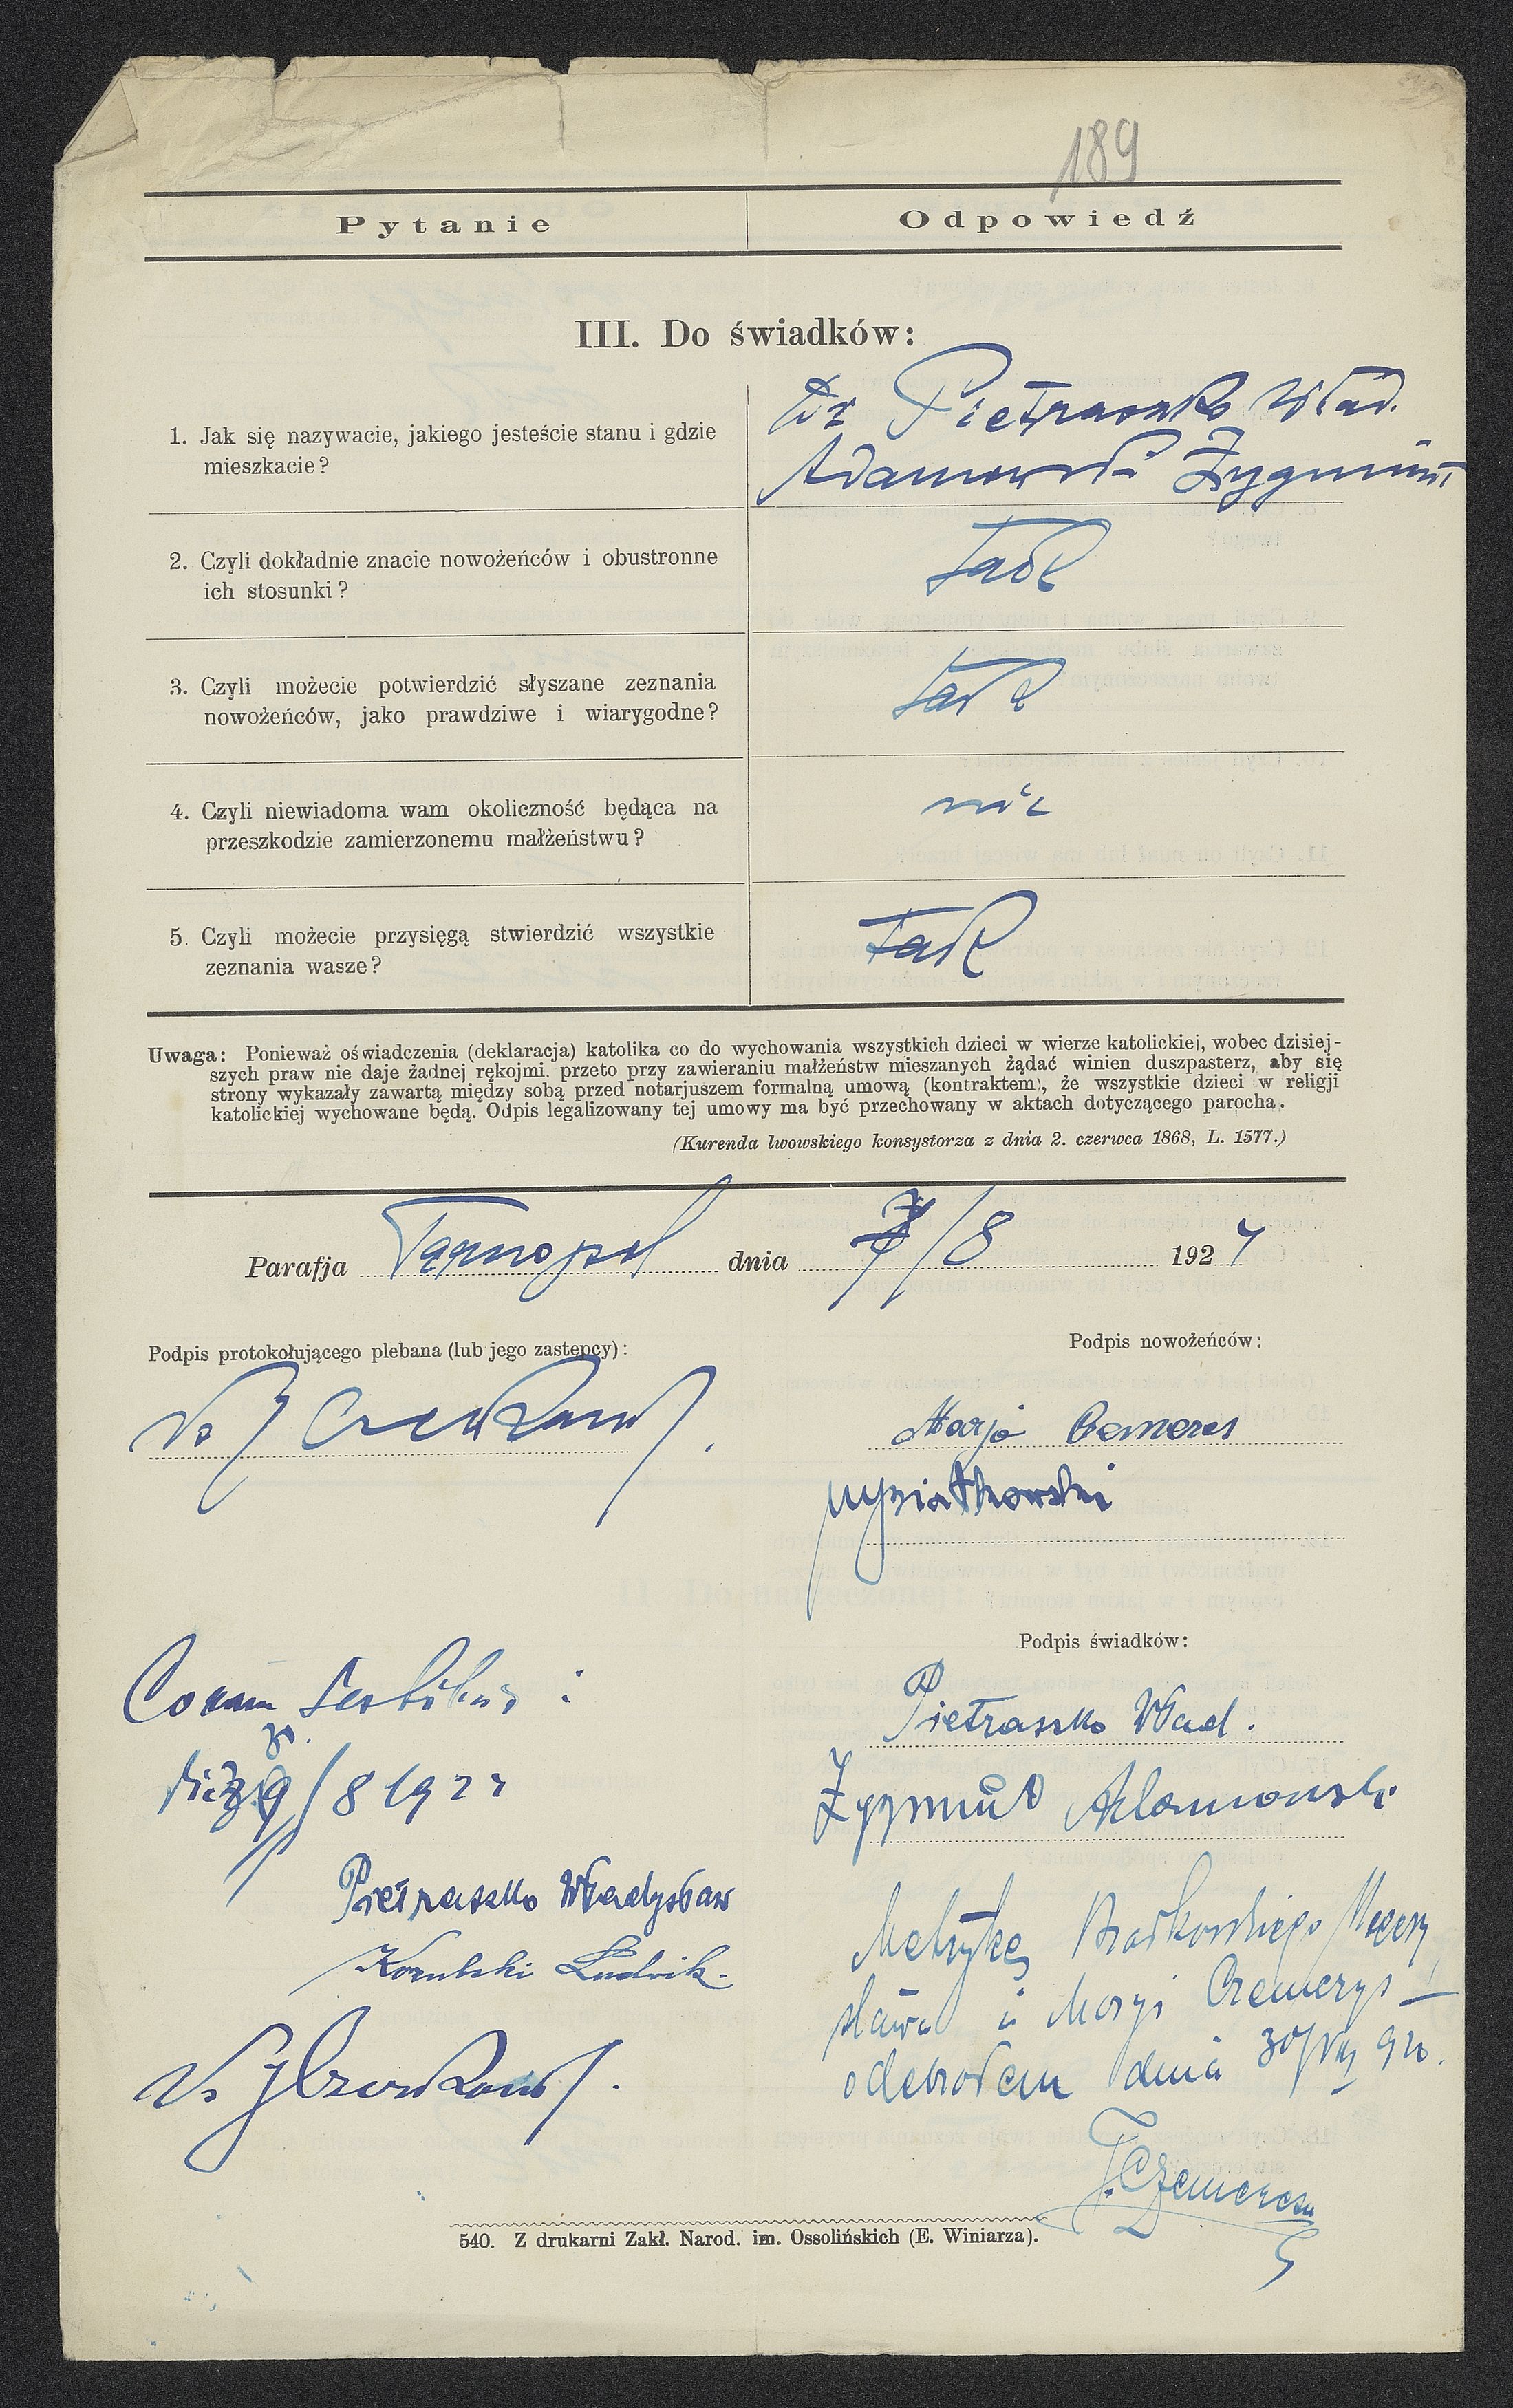 189
Pytanie Odpowiedź
III. Do świadków:
1. Jak się nazywacie, jakiego jesteście stanu i gdzie
mieszkacie?
Pietraszko Wład.
Adamowski Zygmunt
2. Czyli dokładnie znacie nowożeńców i obustronne
ich stosunki?
tak
3. Czyli możecie potwierdzić słyszane zeznania
nowożeńców, jako prawdziwe i wiarygodne?
tak
4. Czyli niewiadoma wam okoliczność będąca na
przeszkodzie zamierzonemu małżeństwu?
nic
5. Czyli możecie przysięgą stwierdzić wszystkie
zeznania wasze?
tak
Uwaga: Ponieważ oświadczenia (deklaracja) katolika co do wychowania wszystkich dzieci w wierze katolickiej, wobec dzisiej-
szych praw nie daje żadnej rękojmi, przeto przy zawieraniu małżeństw mieszanych żądać winien duszpasterz, aby się
strony wykazały zawartą między sobą przed notarjuszem formalną umową (kontraktem), że wszystkie dzieci w religji
katolickiej wychowane będą. Odpis legalizowany tej umowy ma być przechowany w aktach dotyczącego parocha.
(Kurenda lwowskiego konsystorza z dnia 2. czerwca 1868, L. 1577.)
Parafja Tarnopol dnia /8 192
Podpis protokołującego plebana (lub jego zastępcy):
Podpis nowożeńców:
Marja
Coram testibus:
/8 192
Pietraszko Władysław
Ludwik.
Podpis świadków:
Pietraszko Wład.
Zygmunt Adamowski
Metrykę
sława i Maryi
odebrałem dnia
540. Z drukarni Zakł. Narod. im. Ossolińskich (E. Winiarza).